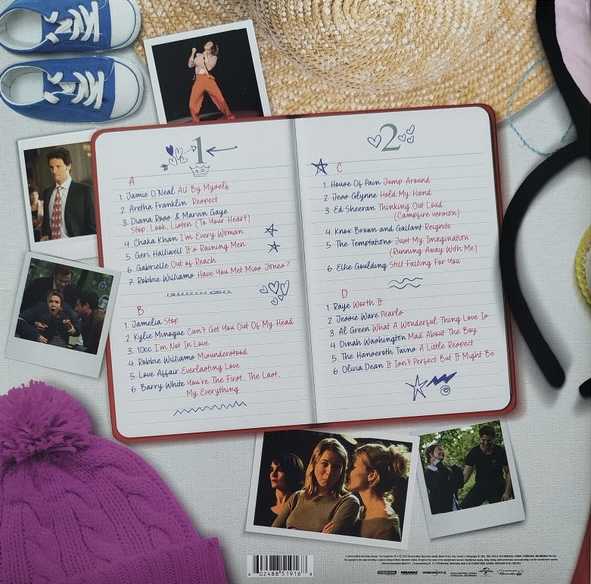 1
A
1. Jamie O'Neal All By Myself
2. Aretha Franklin Respect
3. Diana Ross & Marvin Gaye
Stop, Look, Listen (To Your Heart)
4. Chaka Khan I'm Every Woman
5. Geri Halliwell It's Raining Men
6. Gabrielle Out of Reach
7. Robbie Williams Have You Met Miss Jones?
B
1. Jamelia Stop
2. Kylie Minogue Can't Get You Out Of My Head
3. 10cc I'm Not In Love
4. Robbie Williams Misunderstood
5. Love Affair Everlasting Love
6. Barry White You're The First, The Last,
My Everything
2
C
1. House Of Pain Jump Around
2. Jess Glynne Hold My Hand
3. Ed Sheeran Thinking Out Loud
(Campfire version)
4. Knox Brown and Gallant Reignite
5. The Temptations Just My Imagination
(Running Away With Me)
6. Ellie Goulding Still Falling For You
D
1. Raye Worth It
2. Jessie Ware Pearls
3. Al Green What A Wonderful Thing Love Is
4. Dinah Washington Mad About The Boy
5. The Hanseroth Twins A Little Respect
6. Olivia Dean It Isn't Perfect But It Might Be